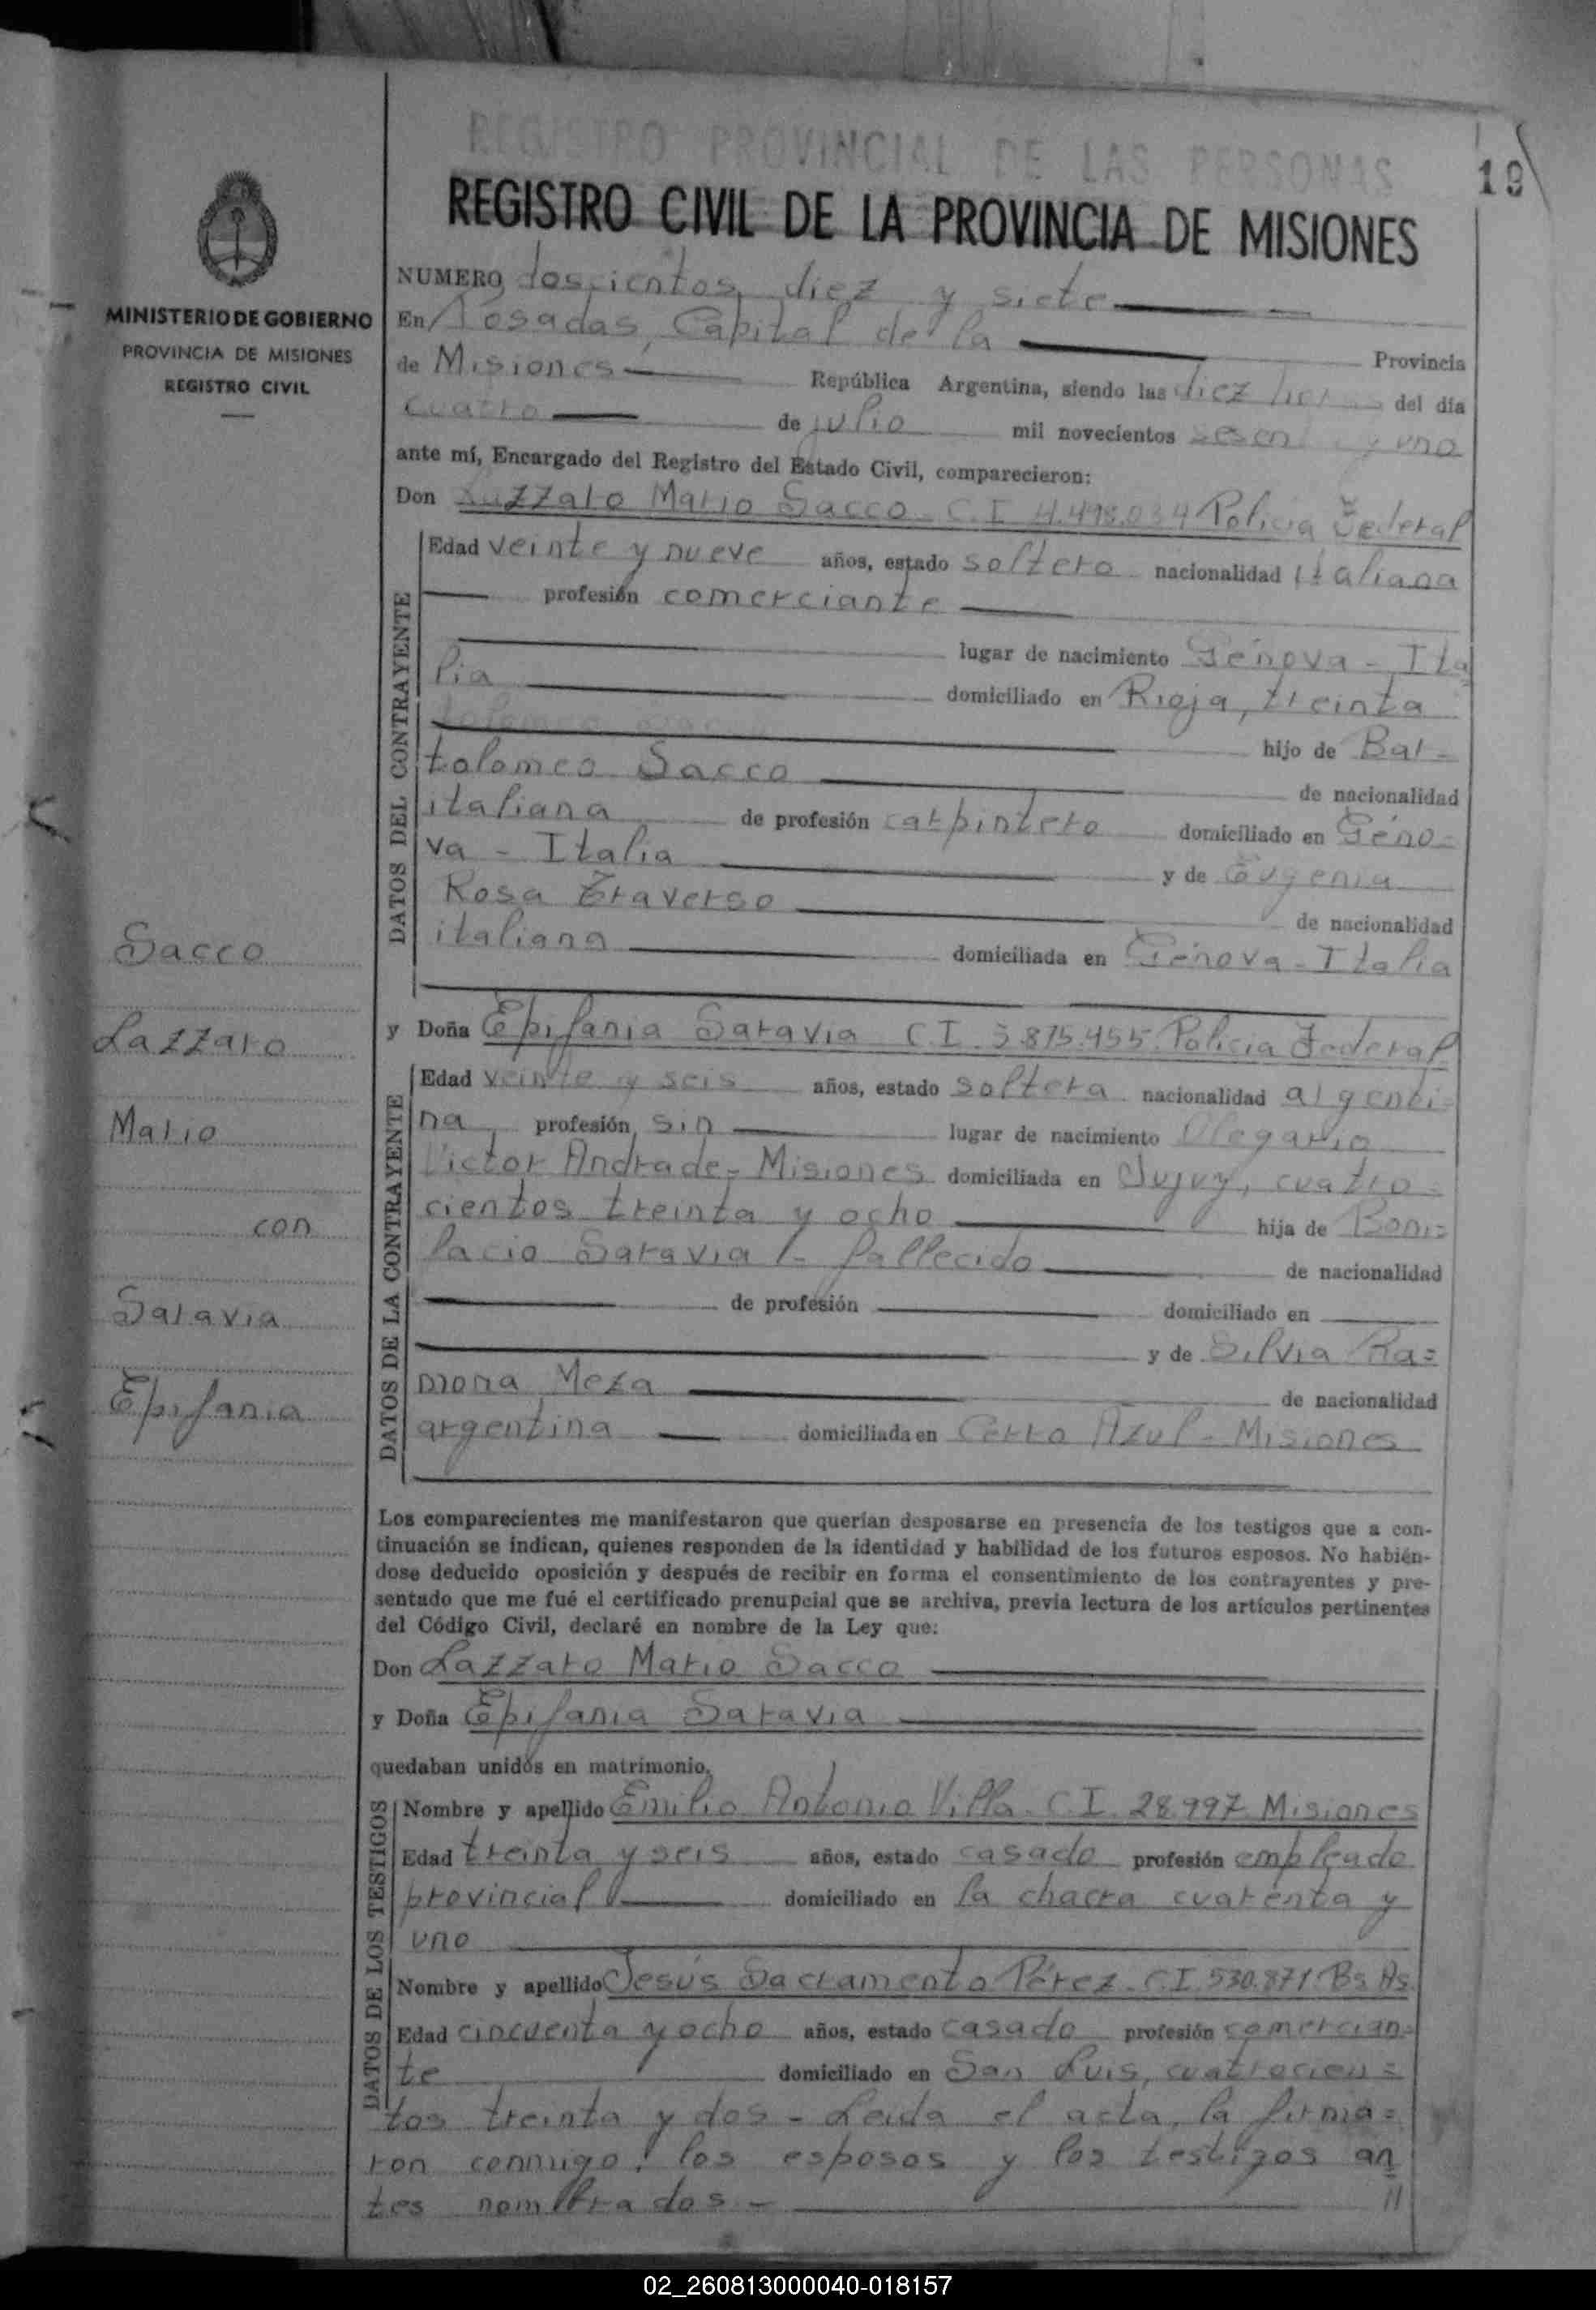 REGISTRO PROVINCIAL DE LAS PERSONAS
19
REGISTRO CIVIL DE LA PROVINCIA DE MISIONES
MINISTERIO DE GOBIERNO
PROVINCIA DE MISIONES
REGISTRO CIVIL
NUMERO doscientos diez y siete
En Posadas, Capital de la Provincia
de Misiones República Argentina, siendo las diez horas del día
cuatro de julio mil novecientos sesenta y uno
ante mí, Encargado del Registro del Estado Civil, comparecieron:
Don Lazzaro Mario Sacco - C.I 4.498.034 Policia Federal
DATOS DEL CONTRAYENTE
Edad veinte y nueve años, estado soltero nacionalidad italiana
profesión comerciante
lugar de nacimiento Génova - Ita
lia domiciliado en Rioja, treinta
hijo de Bar-
tolomeo Sacco de nacionalidad
italiana de profesión carpintero domiciliado en Géno-
va - Italia y de Eugenia
Rosa Traverso de nacionalidad
italiana domiciliada en Génova - Italia
y Doña Epifania Saravia C.I. 3.875.455 Policia Federal
DATOS DE LA CONTRAYENTE
Edad veinte y seis años, estado soltera nacionalidad argenti-
na profesión sin lugar de nacimiento Olegario
Victor Andrade - Misiones domiciliada en Jujuy, cuatro-
cientos treinta y ocho hija de Boni=
facio Saravia - fallecido de nacionalidad
de profesión domiciliado en
y de Silvia Ra=
mona Meza de nacionalidad
argentina domiciliada en Cerro Azul - Misiones
Sacco
Lazzaro
Mario
con
Saravia
Epifania
Los comparecientes me manifestaron que querían desposarse en presencia de los testigos que a con-
tinuación se indican, quienes responden de la identidad y habilidad de los futuros esposos. No habién-
dose deducido oposición y después de recibir en forma el consentimiento de los contrayentes y pre-
sentado que me fué el certificado prenupcial que se archiva, previa lectura de los artículos pertinentes
del Código Civil, declaré en nombre de la Ley que:
Don Lazzaro Mario Sacco
y Doña Epifania Saravia
quedaban unidos en matrimonio.
DATOS DE LOS TESTIGOS
Nombre y apellido Emilio Antonio Villa - C.I. 28.997 Misiones
Edad treinta y seis años, estado casado profesión empleado
provincial domiciliado en la chacra cuarenta y
uno
Nombre y apellido Jesús Sacramento Pérez - C.I. 530.871 Bs As.
Edad cincuenta y ocho años, estado casado profesión comercian=
te domiciliado en San Luis, cuatrocien=
tos treinta y dos - Leida el acta, la firma=
ron conmigo, los esposos y los testigos an
tes nombrados - //
02_260813000040-018157